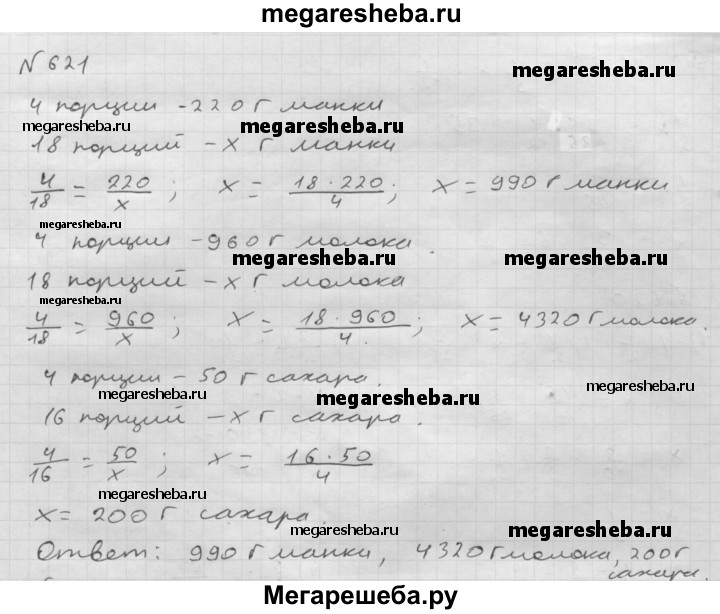 megaresheba.ru
N 621
megaresheba.ru
4 порции - 220 г манки
megaresheba.ru megaresheba.ru
18 порций - x г манки
4/18 = 220/x ; x = 18 · 220/4 ; x = 990 г манки
megaresheba.ru
4 порции - 960 г молока.
megaresheba.ru megaresheba.ru
18 порций - x г молока
megaresheba.ru
4/18 = 960/x ; x = 18 · 960/4. ; x = 4320 г молока.
4 порции - 50 г сахара.
megaresheba.ru megaresheba.ru megaresheba.ru
16 порций - x г сахара.
4/16 = 50/x ; x = 16 · 50/4
megaresheba.ru
x = 200 г сахара
megaresheba.ru megaresheba.ru
Ответ: 990 г манки, 4320 г молока, 200 г
сахара.
Мегарешеба.ру